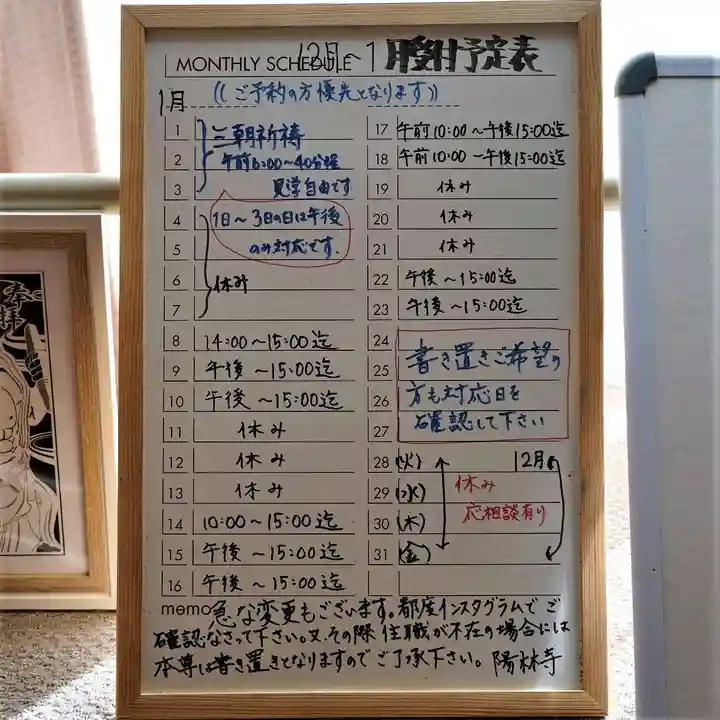 MONTHLY SCHEDULE
12月~1月受付予定表
((ご予約の方優先となります))
1月
1 三朝祈祷
2 午前6:00~40分程
3 見学自由です
4 1日~3日の日は午後
5 のみ対応です.
6 休み
7
8 14:00~15:00迄
9 午後~15:00迄
10 午後~15:00迄
11 休み
12 休み
13 休み
14 10:00~15:00迄
15 午後~15:00迄
16 午後~15:00迄
17 午前10:00~午後15:00迄
18 午前10:00ー午後15:00迄
19 休み
20 休み
21 休み
22 午後~15:00迄
23 午後~15:00迄
24
25 書き置きご希望の
26 方も対応日を
27 確認して下さい
28 (火) 12月
29 (水) 休み
30 (木) 応相談有り
31 (金)
memo 急な変更もございます。都度インスタグラムでご
確認なさって下さい。又その際住職が不在の場合には
本尊は書き置きとなりますのでご了承下さい。 陽林寺
奉拝